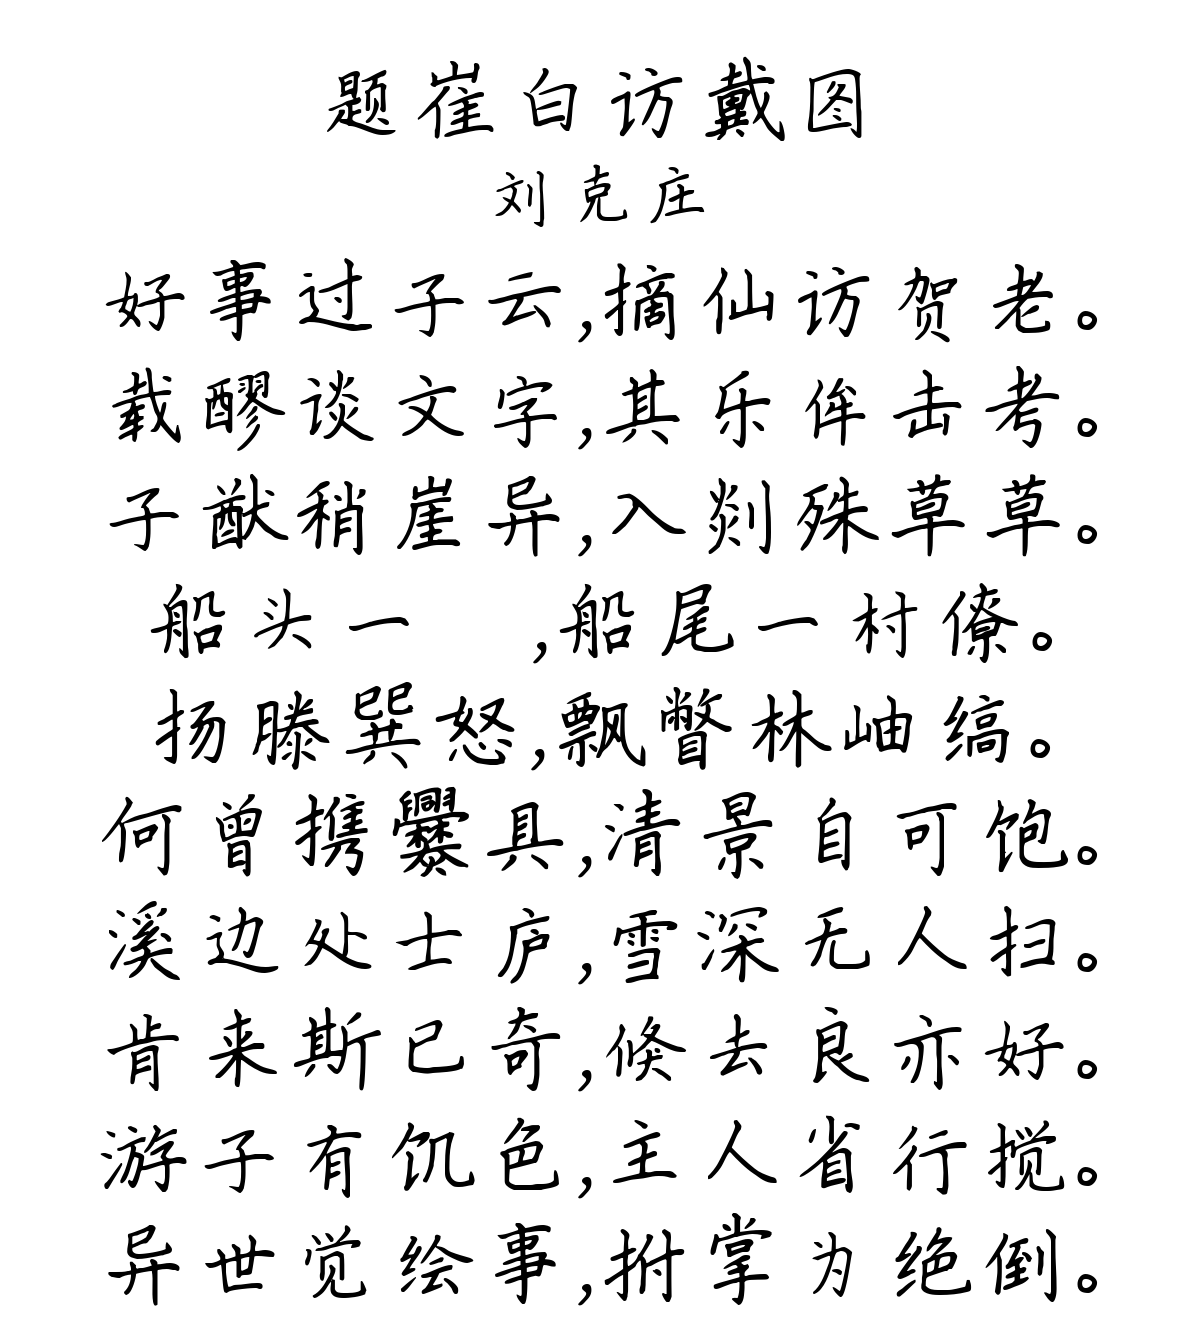 题崔白访戴图
刘克庄
好事过子云,摘仙访贺老。
载醪谈文字,其乐侔击考。
子猷稍崖异,入剡殊草草。
船头一 ,船尾一村僚。
扬滕巽怒,飘瞥林岫缟。
何曾携爨具,清景自可饱。
溪边处士庐,雪深无人扫。
肯来斯已奇,倏去良亦好。
游子有饥色,主人省行搅。
异世觉绘事,拊掌为绝倒。